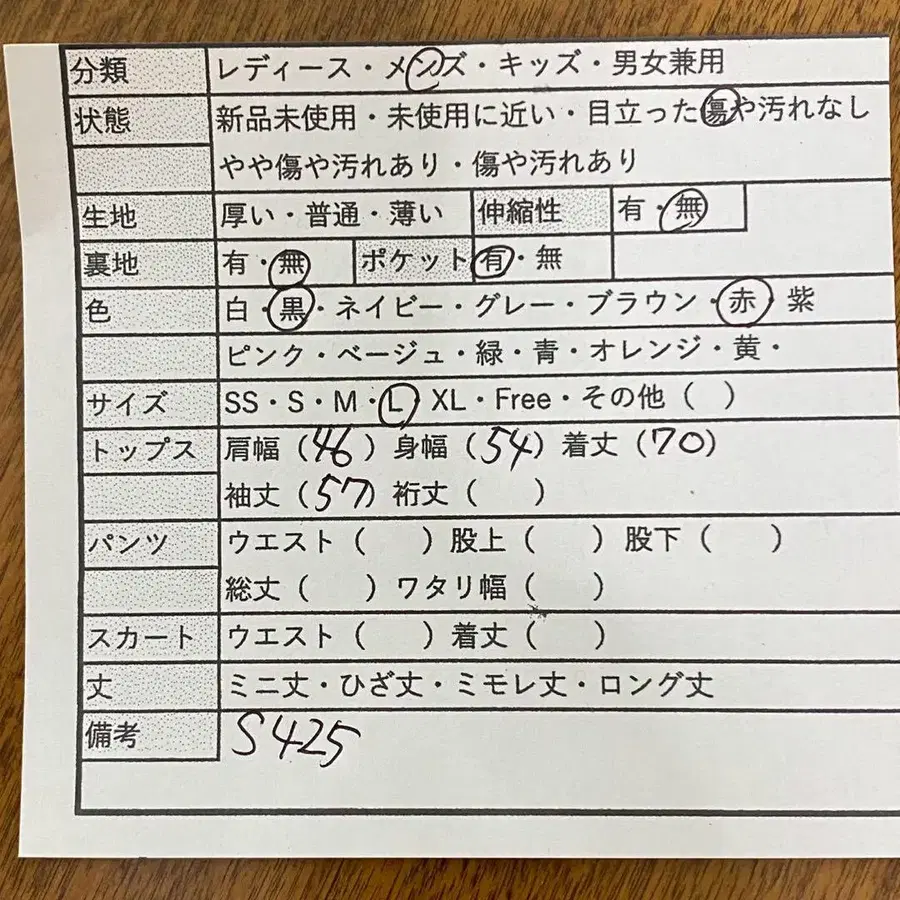 分類 レディース・メンズ・キッズ・男女兼用
状態 新品未使用・未使用に近い・目立った傷や汚れなし
やや傷や汚れあり・傷や汚れあり
生地 厚い・普通・薄い 伸縮性 有・無
裏地 有・無 ポケット 有・無
色 白・黒・ネイビー・グレー・ブラウン・赤・紫
ピンク・ベージュ・緑・青・オレンジ・黄・
サイズ SS・S・M・L・XL・Free・その他（ ）
トップス 肩幅（46）身幅（54）着丈（70）
袖丈（57）裄丈（ ）
パンツ ウエスト（ ）股上（ ）股下（ ）
総丈（ ）ワタリ幅（ ）
スカート ウエスト（ ）着丈（ ）
丈 ミニ丈・ひざ丈・ミモレ丈・ロング丈
備考 S425